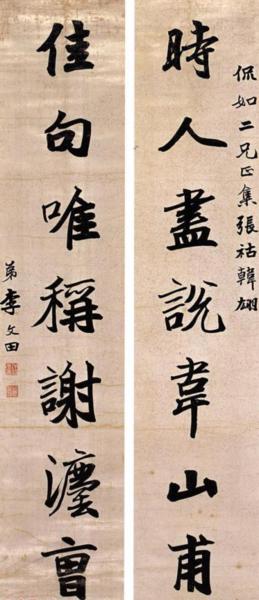 侃如二兄正集張祜韓翃
時人盡說韋山甫
佳句唯稱謝灋曹
弟李文田